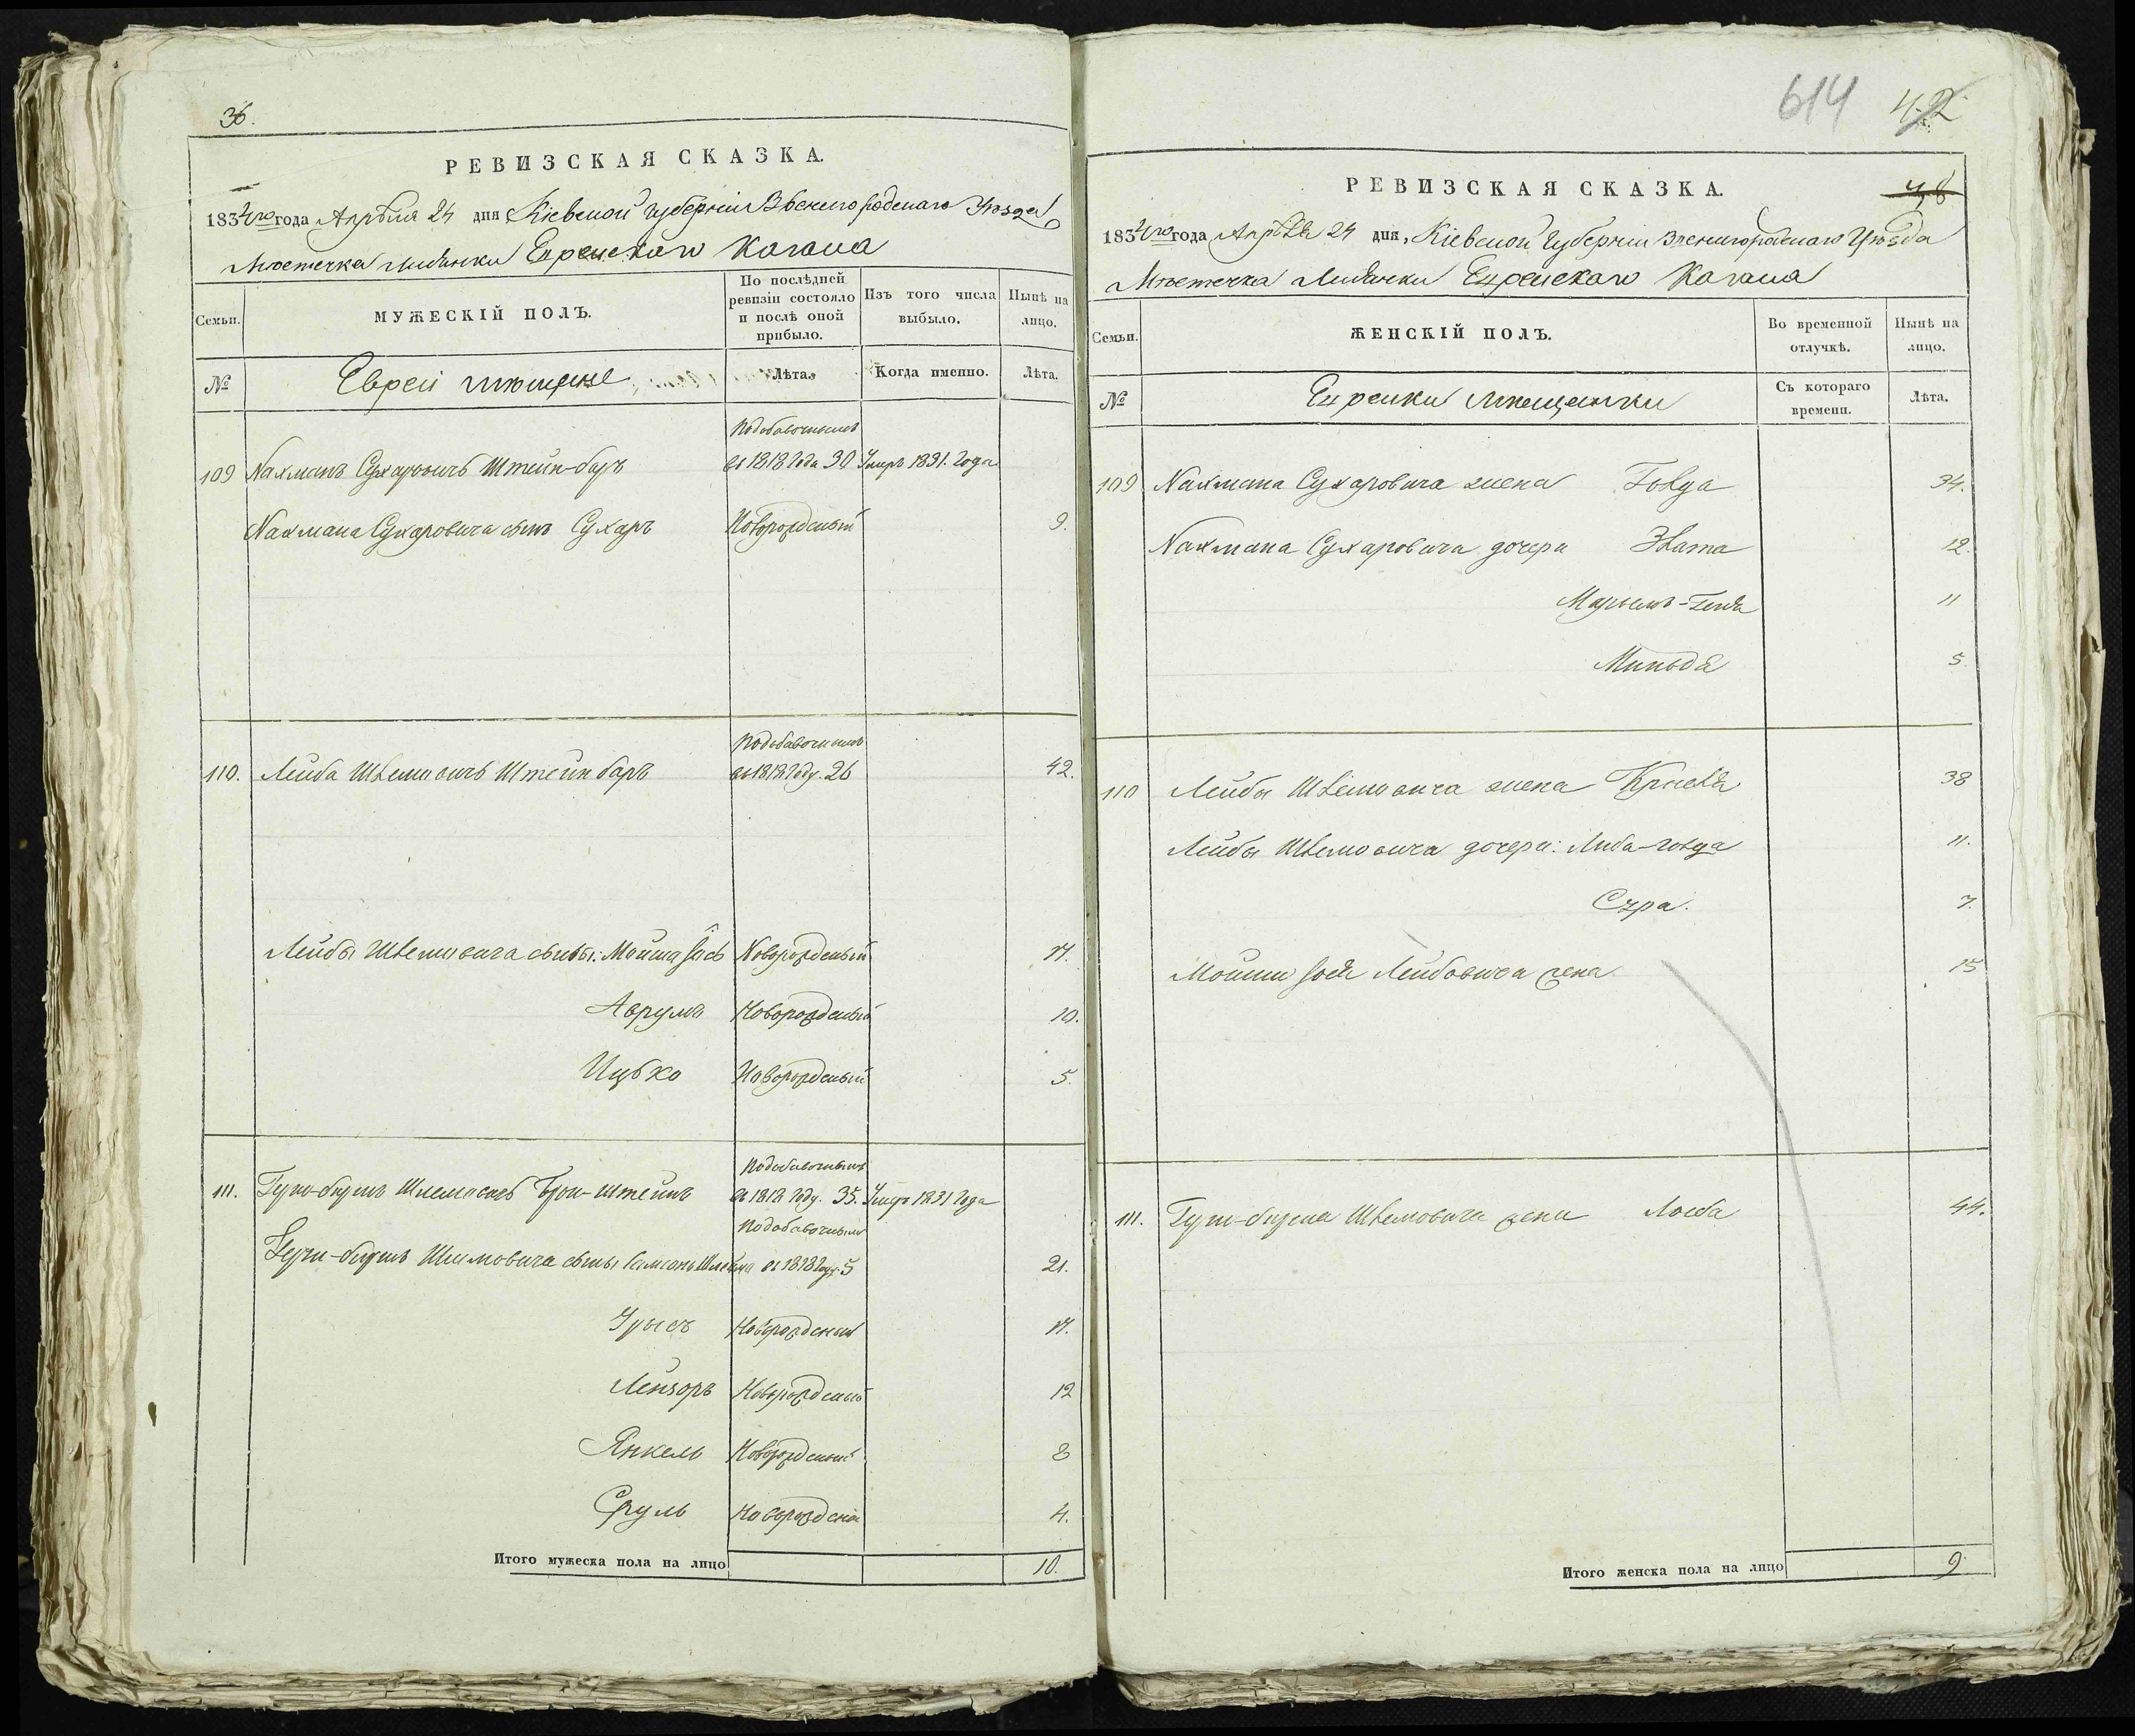 36.
РЕВИЗСКАЯ СКАЗКА.
1834го года Апрѣля 24 дня Кіевской Губерніи Звенигородскаго Уѣзда
Мѣстечка Лисянки Еврейскаго Кагала
Семьи.
МУЖЕСКІЙ ПОЛЪ.
По послѣдней ревизіи состояло и послѣ оной прибыло.
Изъ того числа выбыло.
Нынѣ на лицо.
№
Евреи мѣщане
Лѣта.
Когда именно.
Лѣта.
Подобавочнымъ
109 Нахманъ Сухаровичъ Штейн-баръ въ 1818 года 30 Умеръ 1831. года
Нахмана Сухаровича сынъ Сухаръ Новорожденный 9.
Подобавочнымъ
110. Лейба Шлемовичъ Штейнбаръ въ 1818 году. 26 42.
Лейбы Шлемовича сыновья: Мойша Іось Новорожденный 17.
Аврумъ Новорожденный 10.
Ицько Новорожденный 5.
Подобавочнымъ
111. Шлемовичъ Брон-штейнъ въ 1818 году. 35. Умеръ 1831 года
Подобавочнымъ
Шлемовича сыны Самсонъ Шлейма въ 1818 году 5 21.
Новорожденный 17.
Лейзоръ Новорожденный 12
Янкель Новорожденный 8
Сруль Новорожденный 4.
Итого мужеска пола на лицо 10.
614 42
РЕВИЗСКАЯ СКАЗКА.
48
1834го года Апрѣля 24 дня, Кіевской Губерніи Звенигородскаго Уѣзда
Мѣстечка Лисянки Еврейскаго Кагала
Семьи.
ЖЕНСКІЙ ПОЛЪ.
Во временной отлучкѣ.
Нынѣ на лицо.
№
Еврейки мѣщанки
Съ котораго времени.
Лѣта.
109 Нахмана Сухаровича жена Голда 34.
Нахмана Сухаровича дочери Злата 12.
Марьемъ-Геня 11
Миндя 5.
110 Лейбы Шлемовича жена Крейвля 38
Лейбы Шлемовича дочери: Либа-голда 11.
Сура. 7.
Мойши Іося Лейбовича жена 15
111. Шлемовича жена Лоеба 44.
Итого женска пола на лицо 9